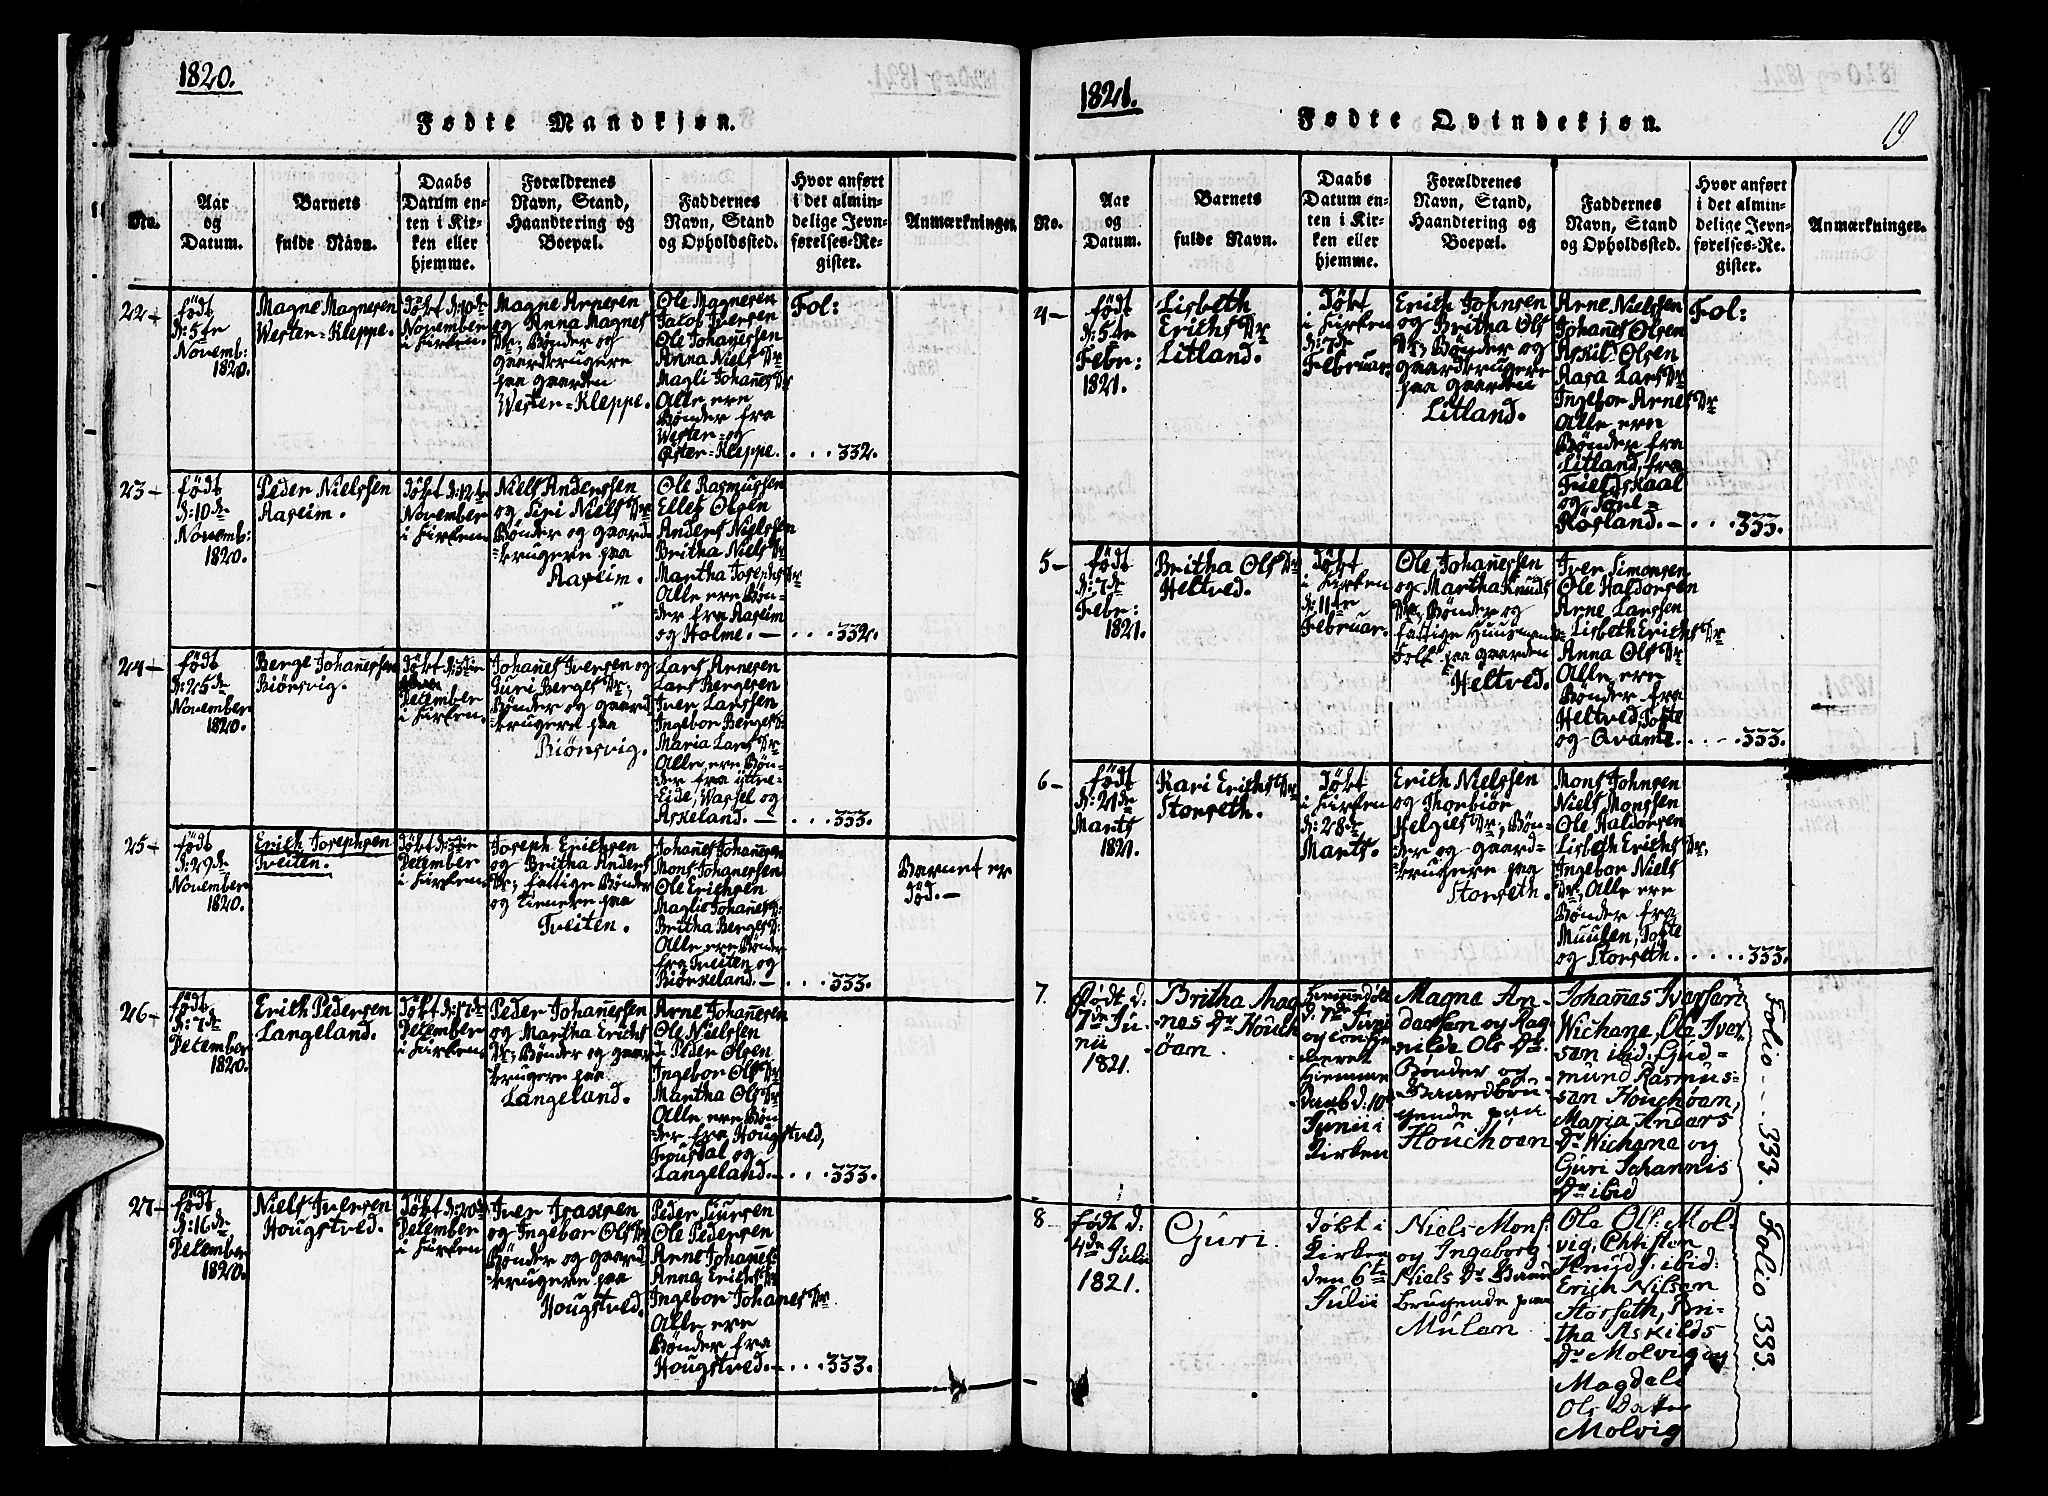 1820.
Fødte Mandkjøn.
No.
Aar
og
Datum.
Barnets
fulde Navn.
Daabs
Datum en-
ten i Kir-
ken eller
hjemme.
Forældrenes
Navn, Stand,
Haandtering og
Boepæl.
Faddernes
Navn, Stand
og Opholdssted.
Hvor anført
i det almin-
delige Jevn-
førelses-Re-
gister.
Anmærkninger.
22-
født
d: 5te
Novemb:
1820.
Magne Magnesen
Wester-Kleppe.
Døbt d: 10de
November
i Kirken.
Magne Arnesen
og Anna Magnes
Dr; Bønder og
gaardbrugere
paa gaarden
Wester-Kleppe.
Ole Magnesen
Jacob Iversen
Ole Johanessen
Anna Niels Dr
Magli Johanes Dr
Alle ere
Bønder fra
Wester- og
Øster-Kleppe.
Fol:
...332.
23-
født
d: 10de
Novemb:
1820.
Peder Nielssen
Aaseim.
Døbt d: 12te
November
i Kirken.
Niels Anderssen
og Siri Niels Dr
Bønder og gaard
-brugere paa
Aaseim.
Ole Rasmussen
Elles Olsen
Anders Nielssen
Britha Niels Dr
Martha Josephs Dr
Alle ere Bøn-
-der fra Aaseim
og Holme. -
...332.
24-
født
d: 25de
November
1820.
Berge Johanessen
Biørsvig.
Døbt d: 3die
December
i Kirken.
Johanes Iversen og
Guri Berges Dr;
Bønder og gaard
brugere paa
Biørsvig.
Lars Arnesen
Lars Bergesen
Iver Larssen
Ingebor Berges Dr
Maria Lars Dr
Alle ere Bøn-
der fra ittre-
Eide, Wassel og
Askeland. -
...333.
25-
født
d: 29de
November
1820.
Erich Josephsen
Tveiten.
Døbt d: 3die
December
i Kirken.
Joseph Erichsen
og Britha Anders
Dr; fattige Bønder
og tienere paa
Tveiten.
Johanes Johanessen
Mons Johanessen
Ole Erichsen
Maglie Johanes D:
Britha Berges D:
Alle ere Bønder
fra Tveiten og
Biørkeland. -
...333.
Barnet er
død. -
26-
født
d: 7de
December
1820.
Erich Pedersen
Langeland.
Døbt d: 17de
December
i Kirken.
Peder Johanessen
og Martha Erichs
Dr; Bønder og gaar
-brugere paa
Langeland.
Arne Johanesen
Ole Nielssen
Peder Olsen
Ingebor Ols Dr
Martha Ols Dr
Alle ere Bøn-
der fra Hougstved,
og
Langeland. -
...333.
27-
født
d: 16de
December
1820.
Niels Iversen
Hougstved.
Døbt d: 20de
December
i Kirken
Iver Isaksen
og Ingebor Ols Dr
Bønder og gaard
brugere paa
Hougstved.
Peder Siursen
Ole Pedersen
Arne Johanes
Anna Erichs Dr
Ingebor Johanes Dr
Alle ere
Bønder fra
Hougstved. -
...333.
1821.
Fødte Qvindekjøn.
19
No.
Aar
og
Datum.
Barnets
fulde Navn.
Daabs
Datum en-
ten i Kir-
ken eller
hjemme.
Forældrenes
Navn, Stand,
Haandtering og
Boepæl.
Faddernes
Navn, Stand
og Opholdssted.
Hvor anført
i det almin-
delige Jevn-
førelses-Re-
gister.
Anmærkninger.
4-
født
d: 5te
Febr:
1821.
Lisbeth
Erichs Dr
Litland.
Døbt
i Kirken
d: 7de
Februar
Erich Johnsen
og Britha Ols
Dr; Bønder og
gaardbrugere
paa gaarden
Litland.
Arne Nielssen
Johanes Olsen
Askild Olsen
Aasa Lars Dr
Ingebor Arnes Dr
Alle ere
Bønder fra
Litland, fra
Fieldskaal
og
Røsland. -
Fol:
...333.
5-
født
d: 7de
Febr:
1821.
Britha Ols Dr
Heltved.
Døbt
i Kirken
d: 11te
Februar.
Ole Johanessen
og Martha Knuds
Dr; Bønder og
fattige Huusmand
Folk paa gaarden
Heltved.
Iver Simonsen
Ole Haldorsen
Arne Larssen
Lisbeth Erichs Dr
Anna Ols Dr
Alle ere
Bønder fra
Heltved, Tofte
og Qvame.
...333.
6-
født
d: 21de
Marts
1821.
Kari Erichs Dr
Storseth.
Døbt
i Kirken
d: 28de
Marts.
Erich Nielssen
og Thorbiør
Helgies Dr, Bøn-
der og gaard-
-brugere paa
Storseth.
Mons Johnsen
Niels Monssen
Ole Haldorsen
Lisbeth Erichs Dr,
Ingebor Niels
Dr; Alle ere
Bønder fra
Muulen, Tofte
og Storseth.
...333.
7.
Født d.
7de Ju-
nii
1821.
Britha Mag
nes Dr Houch
öen.
Hjemmedøbt
d. 7de Junii
og confir-
meret
Hiemme
Daab d. 10de
Junii i
Kirken
Magne An-
dersen og Rag-
nilde Ols Dr.
Bønder og
Gaardbru-
gende paa
Houchöen
Johannes Iverssen
Wichene, Ole Iver-
sen ibid: Gud-
mund Rasmus-
sen Houchöen,
Maria Anders
Dr Wichene og
Guri Johannis
Dr ibid
Folio --- 333.
8
født d.
4de Julii
1821.
Guri.
Døbt i
Kirken
den 6te
Julii
Niels Mons:
og Ingeborg
Niels Dr Gaard
brugende paa
Mulen
Ole Ols: Mol-
vig, Christen
Knuds: ibid:
Erich Nilsen
Storseth, Bri-
tha Askilds
Dr Molvig og
Magdeli
Ols Datter
Molvig
Folio 333.